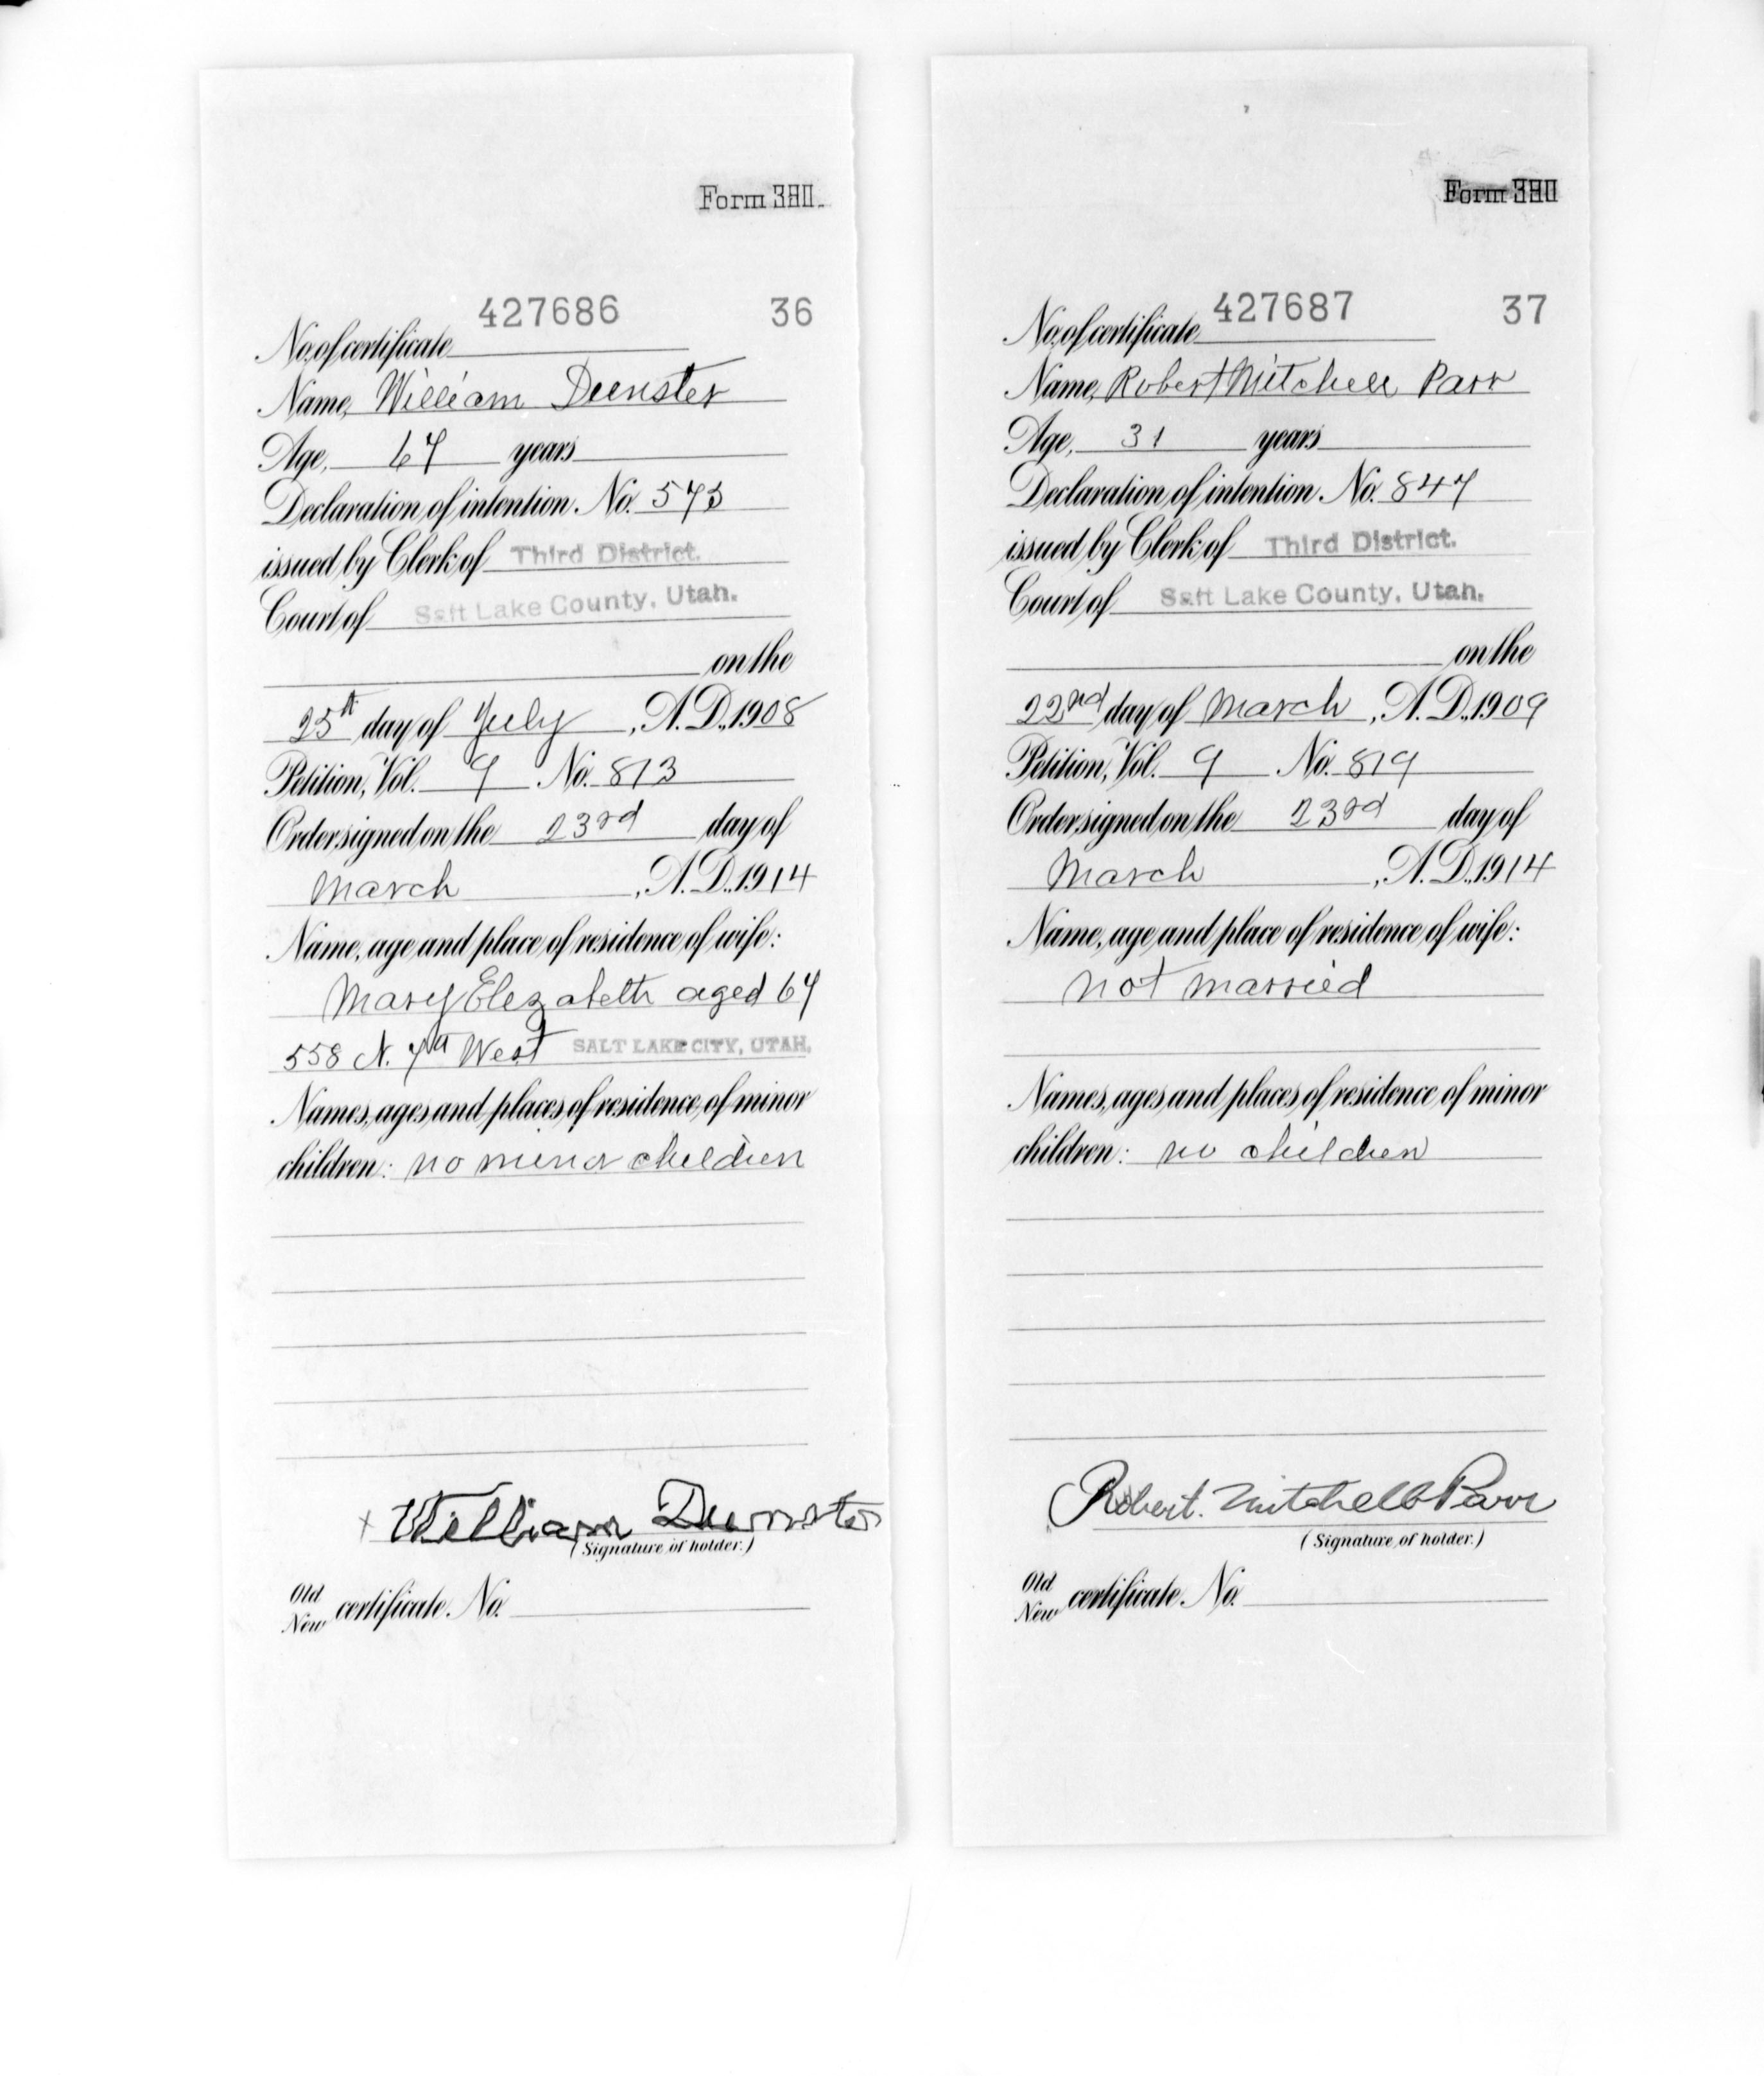 Form 380.
427686 36
No. of certificate
Name, William Dunster
Age, 67 years
Declaration of intention. No. 573
issued by Clerk of Third District.
Court of Salt Lake County, Utah.
on the
25th day of July, A.D. 1908
Petition, Vol. 9 No. 813
Order signed on the 23rd day of
March, A.D. 1914
Name, age and place of residence of wife:
Mary Elezabeth aged 67
558 N. 7th West SALT LAKE CITY, UTAH.
Names, ages and places of residence of minor
children: no minor children
x William Dunster
(Signature of holder.)
Old
New certificate. No.
Form 380
427687 37
No. of certificate
Name, Robert Mitchell Parr
Age, 31 years
Declaration of intention. No. 847
issued by Clerk of Third District.
Court of Salt Lake County, Utah.
on the
22nd day of March, A.D. 1909
Petition, Vol. 9 No. 819
Order signed on the 23rd day of
March, A.D. 1914
Name, age and place of residence of wife:
not married
Names, ages and places of residence of minor
children: no children
Robert. Mitchell Parr
(Signature of holder.)
Old
New certificate. No.